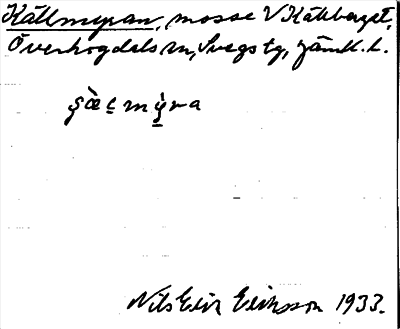 Källmyran, mosse V Källberget,
Överhogdals sn, Svegs tg, Jämtl. l.
Nils Eric Eriksson 1933.